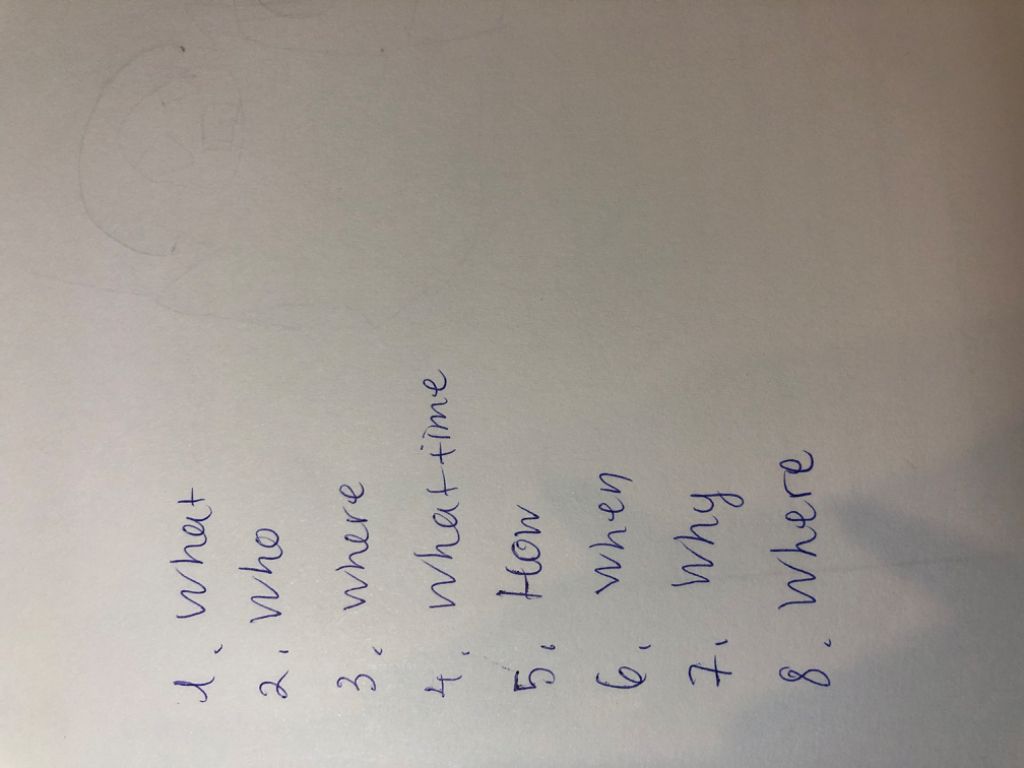 1. what
2. who
3. where
4. what time
5. How
6. when
7. why
8. where